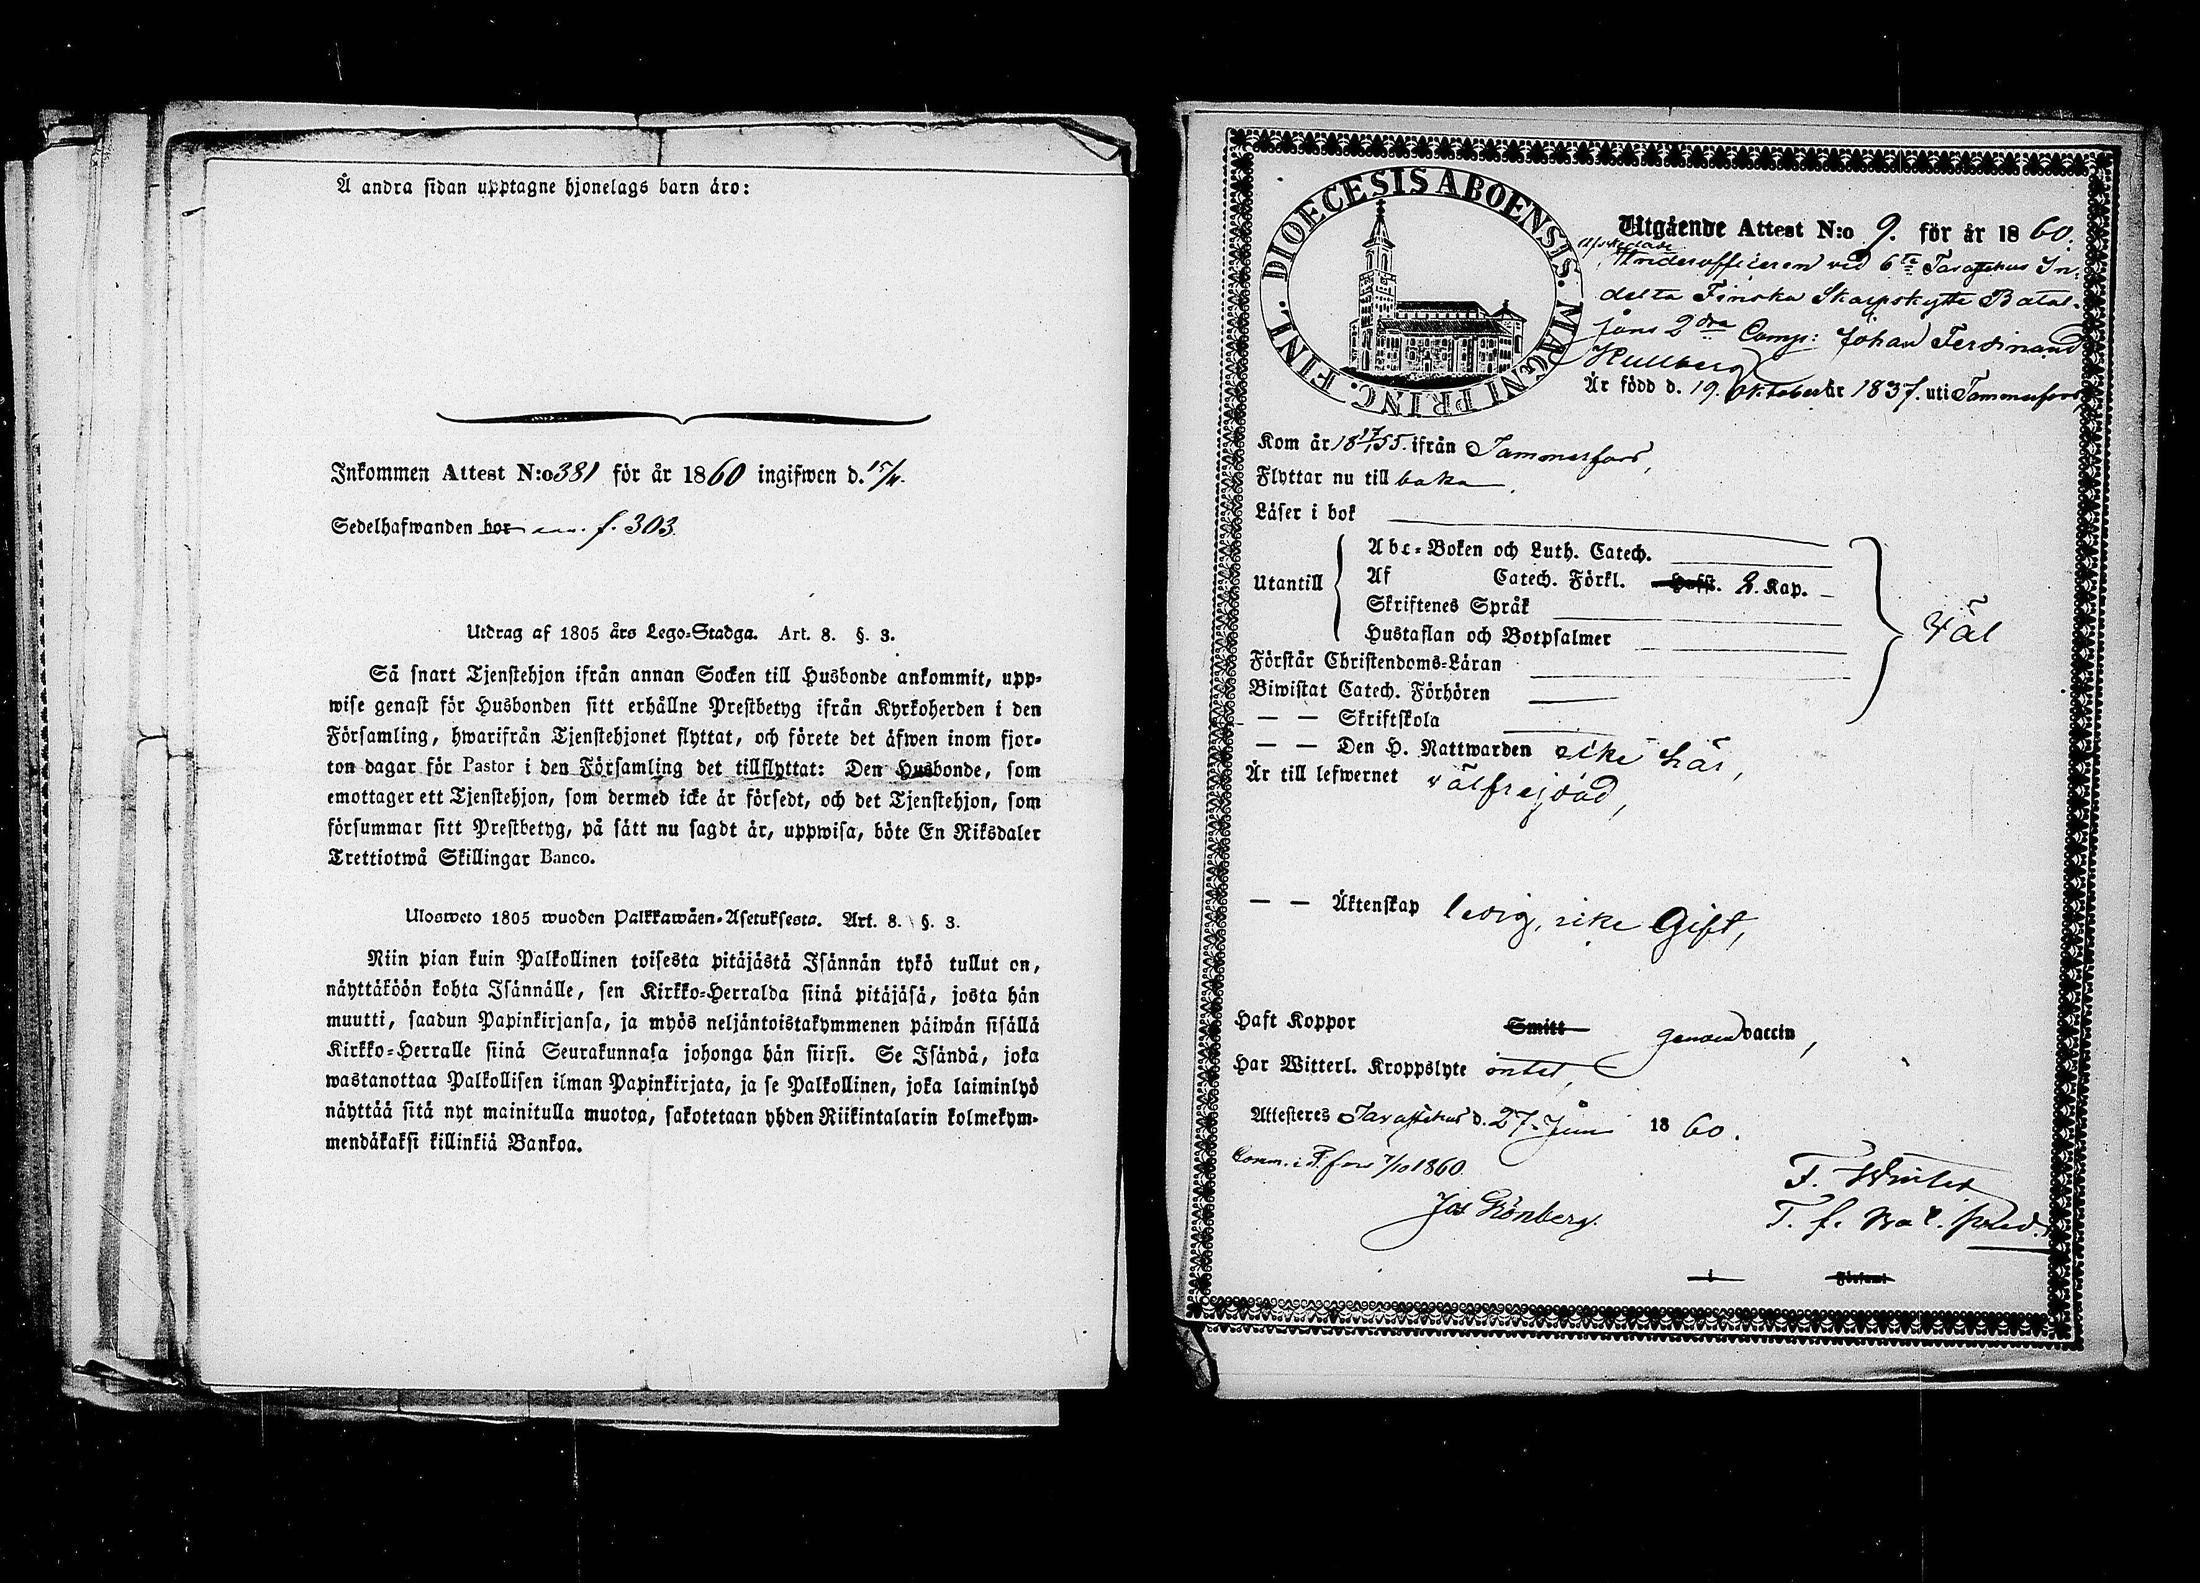 Å andra sidan upptagne hjonelags barn äro:
Inkommen Attest N:o 381 för år 1860 ingifwen d. 15/11.
Sedelhafwanden bor f. 303.
Utdrag af 1805 års Lego-Stadga. Art. 8. §. 3.
Så snart Tjenstehjon ifrån annan Socken till Husbonde ankommit, upp-
wise genast för Husbonden sitt erhållne Prestbetyg ifrån Kyrkoherden i den
Församling, hwarifrån Tjenstehjonet flyttat, och förete det äfwen inom fjor-
ton dagar för Pastor i den Församling det tillflyttat: Den Husbonde, som
emottager ett Tjenstehjon, som dermed icke är försedt, och det Tjenstehjon, som
försummar sitt Prestbetyg, på sätt nu sagdt är, uppwisa, böte En Riksdaler
Trettiotwå Skillingar Banco.
Ulosweto 1805 wuoden Palkkawäen-Asetuksesta. Art. 8. §. 3.
Niin pian kuin Palkollinen toisesta pitäjästä Isännän tykö tullut on,
näyttäköön kohta Isännälle, sen Kirkko-Herralda siinä pitäjäsä, josta hän
muutti, saadun Papinkirjansa, ja myös neljäntoistakymmenen päiwän sisällä
Kirkko-Herralle siinä Seurakunnasa johonga hän siirsi. Se Isändä, joka
wastanottaa Palkollisen ilman Papinkirjata, ja se Palkollinen, joka laiminlyö
näyttää sitä nyt mainitulla muotoa, sakotetaan yhden Riikintalarin kolmekym-
mendäkaksi killinkiä Bankoa.
DIOECESIS ABOENSIS. MAGNI PRINC. FINL.
Utgående Attest N:o 9. för år 1860.
afskedade
Underofficeren vid 6te Tavastehus In-
delta Finska Skarpskytte Batal-
jons 2dra Comp: Johan Ferdinand
Kullberg
Är född d. 19. Oktober år 1837. uti Tammerfors,
Kom år 1855. ifrån Tammerfors,
Flyttar nu till baka.
Läser i bok
Utantill
Abc-Boken och Luth. Catech.
Af Catech. Förkl. Hufst. 2. Kap.
Skriftenes Språk
Hustaflan och Botpsalmer
Väl
Förstår Christendoms-Läran
Biwistat Catech. Förhören
— — Skriftskola
— — Den H. Nattwarden icke här,
Är till lefwernet välfrejdad,
— — Äktenskap ledig, icke Gift,
Haft Koppor Smitt genom vaccin,
Har Witterl. Kroppslyte intet,
Attesteres Tavastehus d. 27. Juni 1860.
Comm. i T.fors 7/10 1860.
Jos Grönberg.
F. Winter
T. f. Bat. pred.
i Församl